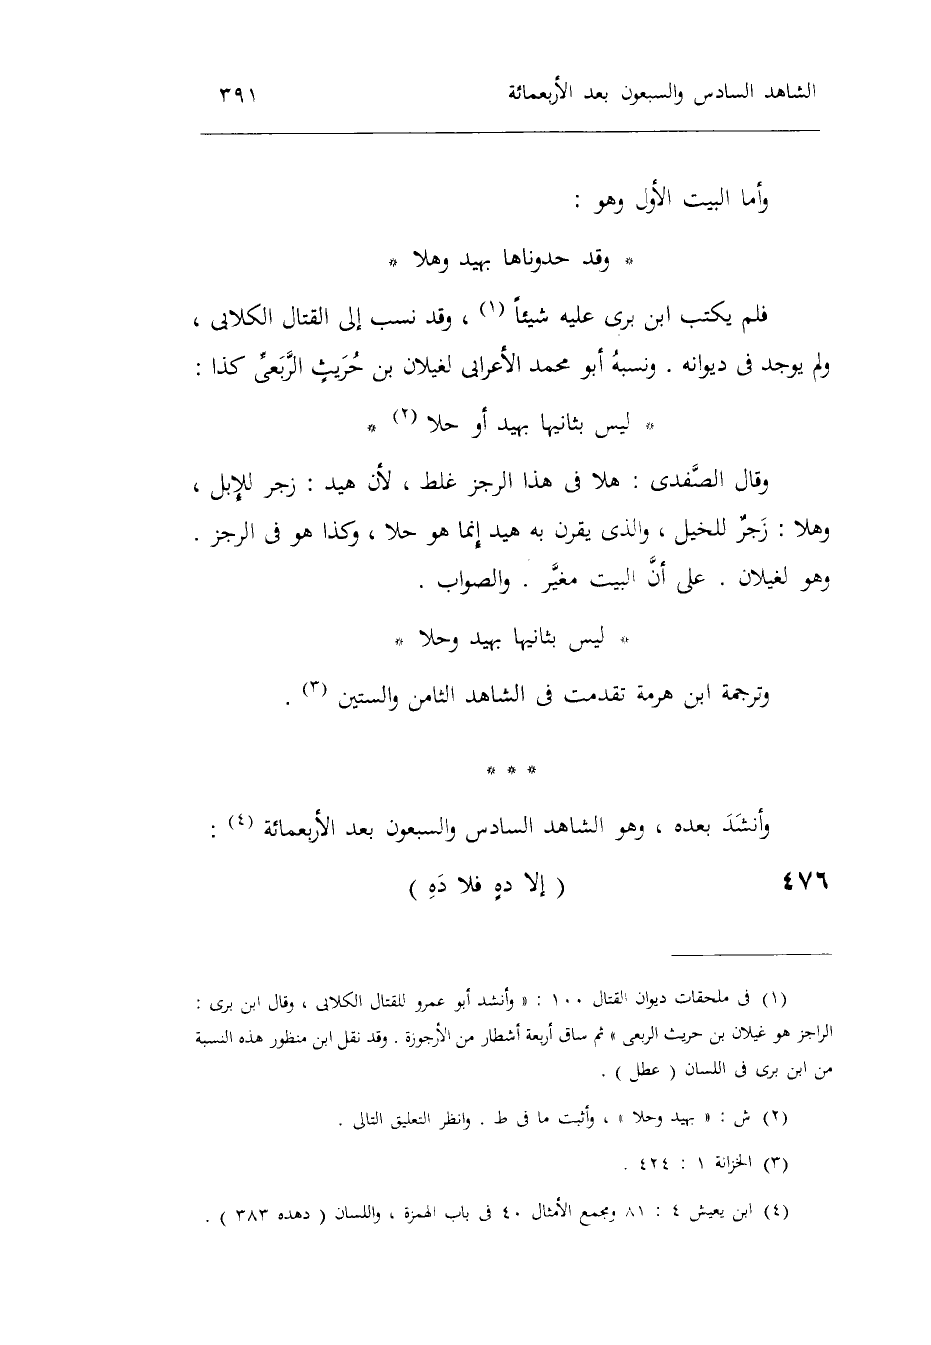 الشاهد السادس والسبعون بعد الأربعمائة ٣٩١
وأما البيت الأول وهو :
* وقد حدوناها بهيد وهلا *
فلم يكتب ابن برى عليه شيئاً (١) ، وقد نسب إلى القتال الكلابى ،
ولم يوجد فى ديوانه . ونسبهُ أبو محمد الأعرابى لغيلان بن حُرَيثٍ الرَّبَعىِّ كذا :
* ليس بثانيها بهيد أو حلا (٢) *
وقال الصَّفدى : هلا فى هذا الرجز غلط ، لأن هيد : زجر للإبل ،
وهلا : زَجرٌ للخيل ، والذى يقرن به هيد إنما هو حلا ، وكذا هو فى الرجز .
وهو لغيلان . على أنَّ البيت مغيَّر . والصواب .
* ليس بثانيها بهيد وحلا *
وترجمة ابن هرمة تقدمت فى الشاهد الثامن والستين (٣) .
* * *
وأنشَدَ بعده ، وهو الشاهد السادس والسبعون بعد الأربعمائة (٤) :
٤٧٦ ( إلا دهٍ فلا دَهِ )
(١) فى ملحقات ديوان القتال ١٠٠ : « وأنشد أبو عمرو للقتال الكلابى ، وقال ابن برى :
الراجز هو غيلان بن حريث الربعى » ثم ساق أربعة أشطار من الأرجوزة . وقد نقل ابن منظور هذه النسبة
من ابن برى فى اللسان ( عطل ) .
(٢) ش : « بهيد وحلا » ، وأثبت ما فى ط . وانظر التعليق التالى .
(٣) الخزانة ١ : ٤٢٤ .
(٤) ابن يعيش ٤ : ٨١ ومجمع الأمثال ٤٠ فى باب الهمزة ، واللسان ( دهده ٣٨٣ ) .